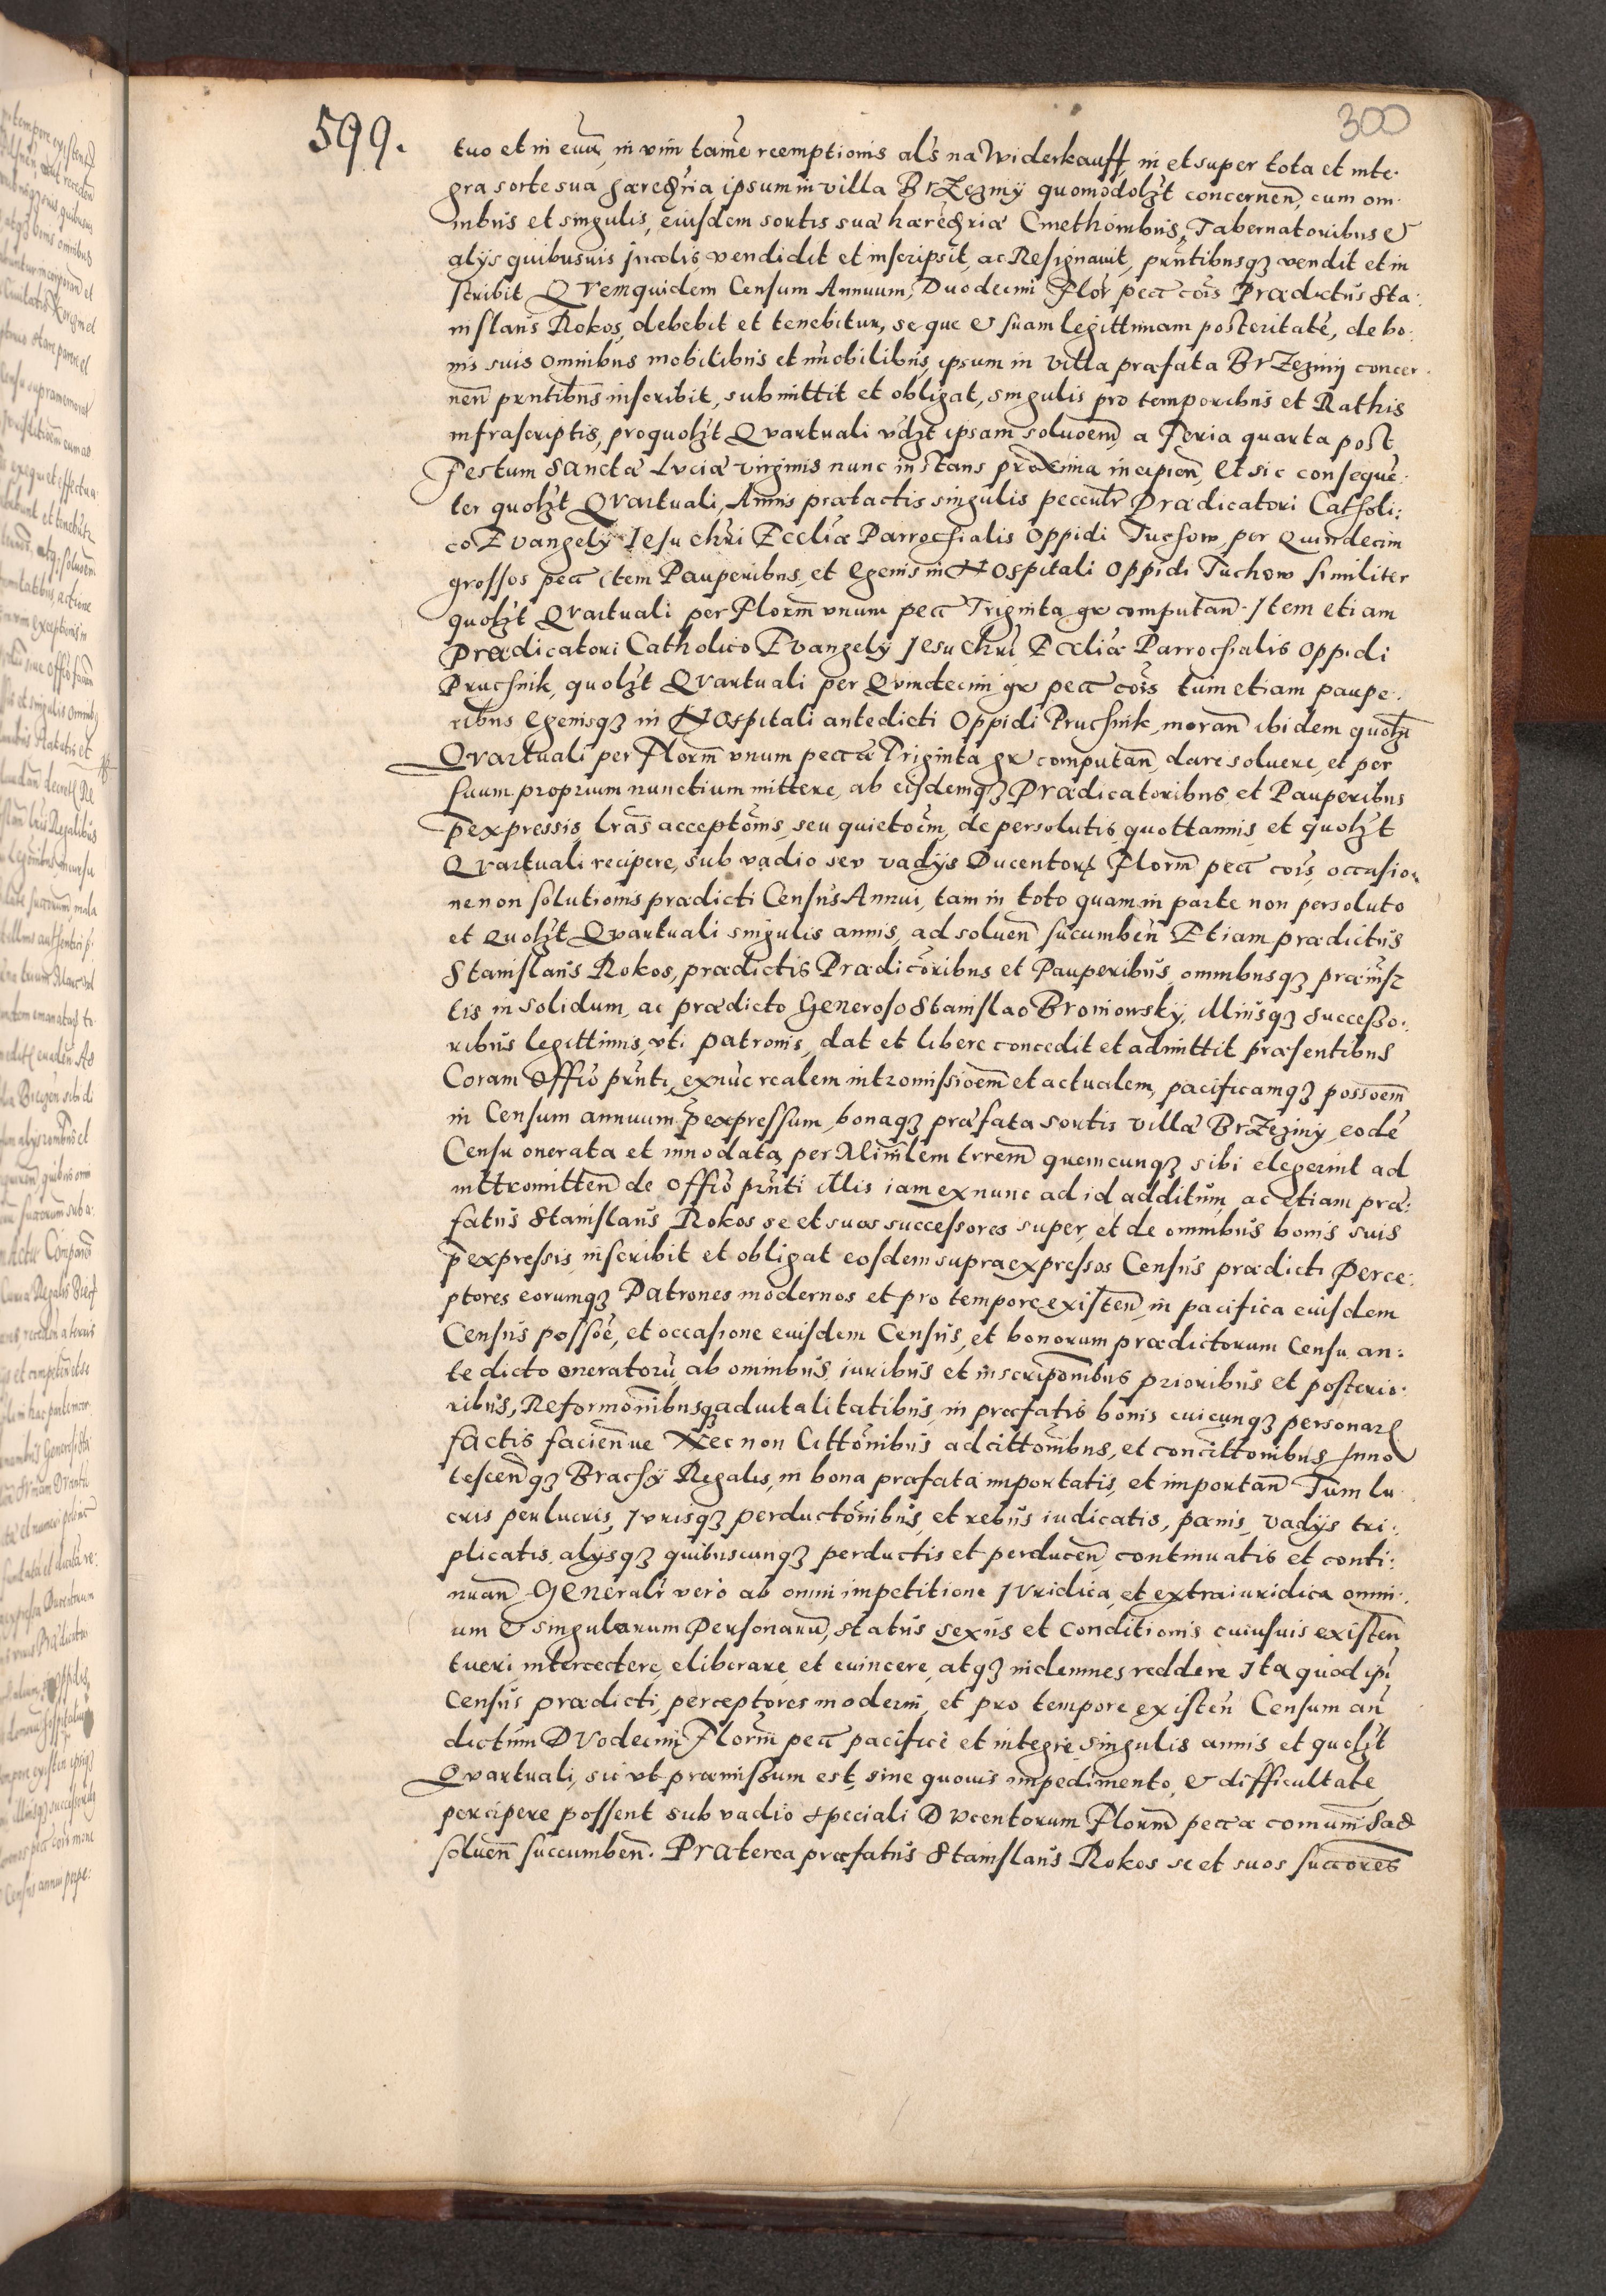 599.
300
tuo et in euū, in vim tamē reemptionis als na Widerkauff, in et super tota et inte.
gra sorte sua hæredria ipsum in villa BrZeziny quomodolzt concernen̄, cum om.
nibus et singulis, eiusdem sortis suæ hæredriæ Cmethonibus, Tabernatoribus &
alijs quibusuis Jncolis, vendidit et inscripsit, ac Resignauit, prntibusqz vendit et in
scribit QVemquidem Censum Annuum, Duodecim Flor pecc cois Prædictus Sta:
nislaus Rokos, debebit et tenebitur, seque & suam legittimam posteritatē, de bo.
nis suis omnibus mobilibus et imobilibus, ipsum in villa præfata BrZeziny concer.
nen̄ prntibus inscribit, submittit et obligat, singulis pro temporibus et Rathis
infrascriptis, pro quolzt Qvartuali vdzt ipsam soluoem̄, a Feria quarta post
Festum Sanctæ Lvciæ virginis nunc instans proxima incipien̄, Et sic consequē.
ter quolzt Qvartuali, Annis prætactis singulis peccutr Prædicatori Catholi:
co Evangelÿ Iesu chri Eccliæ Parrochialis Oppidi Tuchow per Quindecim
grossos pecc item Pauperibus, et Egenis in Hospitali Oppidi Tuchow similiter
quolzt Qvartuali per Florm̄ vnum pecc Triginta gr computan̄. Item etiam
Prædicatori Catholico Evangelÿ Iesu chri Eccliæ Parrochialis Oppidi
Pruchnik, quolzt Qvartuali per Qvindecim gr pecc cois tum etiam paupe.
ribus Egenisqz in Hospitali antedicti Oppidi Pruchnik, moran̄ ibidem quolzt
Qvartuali per Florm̄ vnum peccæ Triginta gr computan̄, dare soluere, et per
suum proprium nunctium mittere, ab eisdemqz Prædicatoribus et Pauperibus
p̄expressis, lrās acceptōnis, seu quietoēm, de persolutis quottannis et quolzt
Qvartuali recipere, sub vadio seu vadÿs Ducentorꝝ Florm̄ pecc cois, occasio
ne non solutionis prædicti Census Annui, tam in toto quam in parte non persoluto
et Quolzt Qvartuali singulis annis, ad soluen̄ sucumben̄ Etiam prædictus
Stanislaus Rokos, prædictis Prædicōribus et Pauperibus, omnibusqz præmis
tis in solidum, ac prædicto Generoso Stanislao Broniowskÿ, illiusqz Successo:.
ribus legittimis, vti patronis, dat et libere concedit et admittit præsentibus
Coram Offio prnti, exnūc realem intromissioem̄ et actualem, pacificamqz possoem̄
in Censum annuum p̄expressum, bonaqz præfata sortis villæ BrZeziny, eodē
Censu onerata et innodata, per Mīnlem trrem̄ quemcunqz sibi elegerint ad
inttromitten̄ de Offio prnti illis iam exnunc ad id additum, ac etiam præ:
fatus Stanislaus Rokos se et suos successores super, et de omnibus bonis suis
p̄expressis, inscribit et obligat eosdem supraexpressos Census prædicti Perce:
ptores eorumqz Patrones modernos et pro tempore existen̄ in pacifica eiusdem
Census possoē, et occasione eiusdem Census, et bonorum prædictorum Censu an:
tedicto oneratorū, ab omnibus iuribus et inscriponibus prioribus et posterio:
ribus, Reformōnibusqz aduitalitatibus, in præfatis bonis cuicunqz personarꝝ
factis facien̄ue Necnon Cittōnibus adcittōnibus, et concittonibus Inno
tescen̄qz Brachÿ Regalis, in bona præfata importatis, et importan̄ Tum lu
cris perlucris, Ivrisqz perductōnibus, et rebus iudicatis, pænis, vadÿs tri:
plicatis, alÿsqz quibuscunqz perductis et perducen̄ continuatis et conti:
nuan̄ Generali vero ab omni impetitione Ivridica, et extraiuridica omni.
um & singularum Personarū, status sexus et conditionis cuiusuis existen̄
tueri, intercedere, eliberare, et euincere, atqz indemnes reddere Ita quod ipi
Census prædicti, perceptores moderni, et pro tempore existen̄ Censum an
dictum DVodecim Florm̄ pecc pacifice et integre singulis annis et quolzt
Qvartuali, sic vt præmissum est, sine quouis impedimento & difficultate
percipere possent sub vadio speciali Dvcentorum Florm̄ peccæ comunis ad
soluen̄ succumben̄. Præterea præfatus Stanislaus Rokos se et suos succores